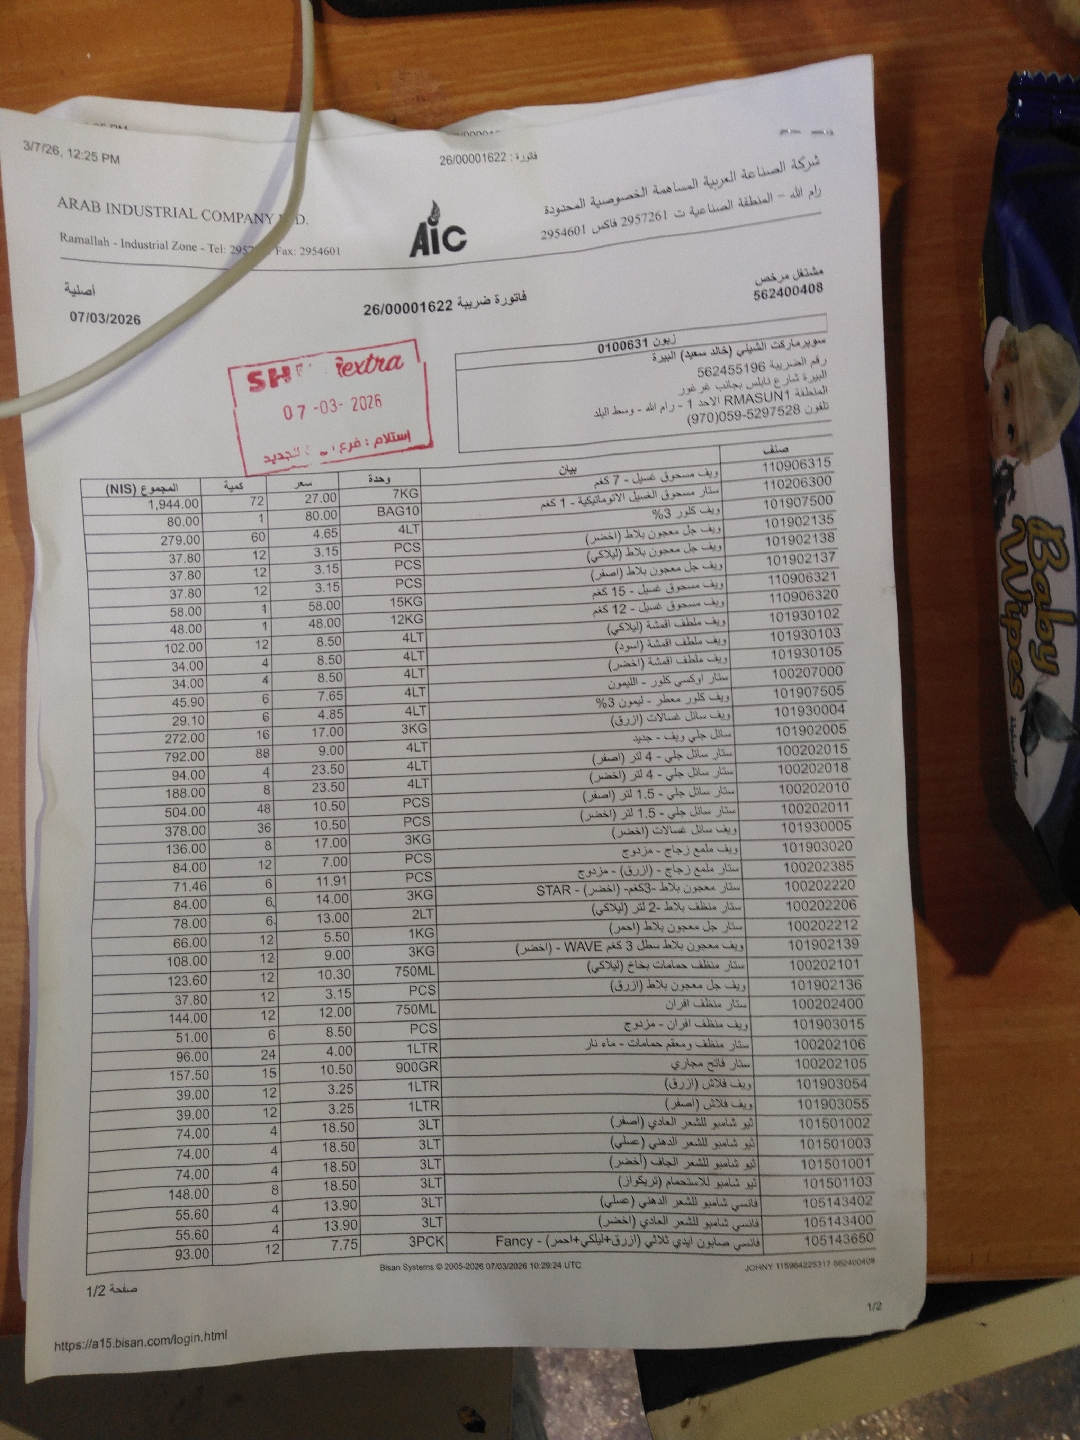 3/7/26, 12:25 PM
فاتورة : 26/00001622
ARAB INDUSTRIAL COMPANY
شركة الصناعة العربية المساهمة الخصوصية المحدودة
Ramallah - Industrial Zone - Tel: Fax: 2954601
AIC
رام الله - المنطقة الصناعية ت 2957261 فاكس 2954601
أصلية
07/03/2026
فاتورة ضريبة 26/00001622
مشتغل مرخص
562400408
زبون 0100631
سوبرماركت الشيني (خالد سعيد) البيرة
رقم الضريبة 562455196
البيرة شارع نابلس بجانب غرغور
المنطقة RMASUN1 الاحد 1 - رام الله - وسط البلد
تلفون 059-5297528(970)
extra
07-03-2026
إستلام : فرع الجديد
صنف بيان وحدة سعر كمية المجموع (NIS)
110906315 ويف مسحوق غسيل - 7 كغم 7KG 27.00 72 1,944.00
110206300 ستار مسحوق الغسيل الاتوماتيكية - 1 كغم BAG10 80.00 1 80.00
101907500 ويف كلور 3% 4LT 4.65 60 279.00
101902135 ويف جل معجون بلاط (اخضر) PCS 3.15 12 37.80
101902138 ويف جل معجون بلاط (ليلاكي) PCS 3.15 12 37.80
101902137 ويف جل معجون بلاط (اصفر) PCS 3.15 12 37.80
110906321 ويف مسحوق غسيل - 15 كغم 15KG 58.00 1 58.00
110906320 ويف مسحوق غسيل - 12 كغم 12KG 48.00 1 48.00
101930102 ويف ملطف اقمشة (ليلاكي) 4LT 8.50 12 102.00
101930103 ويف ملطف اقمشة (اسود) 4LT 8.50 4 34.00
101930105 ويف ملطف اقمشة (اخضر) 4LT 8.50 4 34.00
100207000 ستار اوكسي كلور - الليمون 4LT 7.65 6 45.90
101907505 ويف كلور معطر - ليمون 3% 4LT 4.85 6 29.10
101930004 ويف سائل غسالات (ازرق) 3KG 17.00 16 272.00
101902005 سائل جلي ويف - جديد 4LT 9.00 88 792.00
100202015 ستار سائل جلي - 4 لتر (اصفر) 4LT 23.50 4 94.00
100202018 ستار سائل جلي - 4 لتر (اخضر) 4LT 23.50 8 188.00
100202010 ستار سائل جلي - 1.5 لتر (اصفر) PCS 10.50 48 504.00
100202011 ستار سائل جلي - 1.5 لتر (اخضر) PCS 10.50 36 378.00
101930005 ويف سائل غسالات (اخضر) 3KG 17.00 8 136.00
101903020 ويف ملمع زجاج - مزدوج PCS 7.00 12 84.00
100202385 ستار ملمع زجاج - (ازرق) - مزدوج PCS 11.91 6 71.46
100202220 ستار معجون بلاط -3كغم- (اخضر) - STAR 3KG 14.00 6 84.00
100202206 ستار منظف بلاط -2 لتر (ليلاكي) 2LT 13.00 6 78.00
100202212 ستار جل معجون بلاط (احمر) 1KG 5.50 12 66.00
101902139 ويف معجون بلاط سطل 3 كغم WAVE - (اخضر) 3KG 9.00 12 108.00
100202101 ستار منظف حمامات بخاخ (ليلاكي) 750ML 10.30 12 123.60
101902136 ويف جل معجون بلاط (ازرق) PCS 3.15 12 37.80
100202400 ستار منظف افران 750ML 12.00 12 144.00
101903015 ويف منظف افران - مزدوج PCS 8.50 6 51.00
100202106 ستار منظف ومعقم حمامات - ماء نار 1LTR 4.00 24 96.00
100202105 ستار فاتح مجاري 900GR 10.50 15 157.50
101903054 ويف فلاش (ازرق) 1LTR 3.25 12 39.00
101903055 ويف فلاش (اصفر) 1LTR 3.25 12 39.00
101501002 نيو شامبو للشعر العادي (اصفر) 3LT 18.50 4 74.00
101501003 نيو شامبو للشعر الدهني (عسلي) 3LT 18.50 4 74.00
101501001 نيو شامبو للشعر الجاف (أخضر) 3LT 18.50 4 74.00
101501103 نيو شامبو للاستحمام (تريكواز) 3LT 18.50 8 148.00
105143402 فانسي شامبو للشعر الدهني (عسلي) 3LT 13.90 4 55.60
105143400 فانسي شامبو للشعر العادي (اخضر) 3LT 13.90 4 55.60
105143650 فانسي صابون ايدي ثلاثي (ازرق+ليلكي+احمر) - Fancy 3PCK 7.75 12 93.00
Bisan Systems © 2005-2026 07/03/2026 10:29:24 UTC
JOHNY 115984225317 562400408
صفحة 1/2
1/2
https://a15.bisan.com/login.html
Baby
Wipes